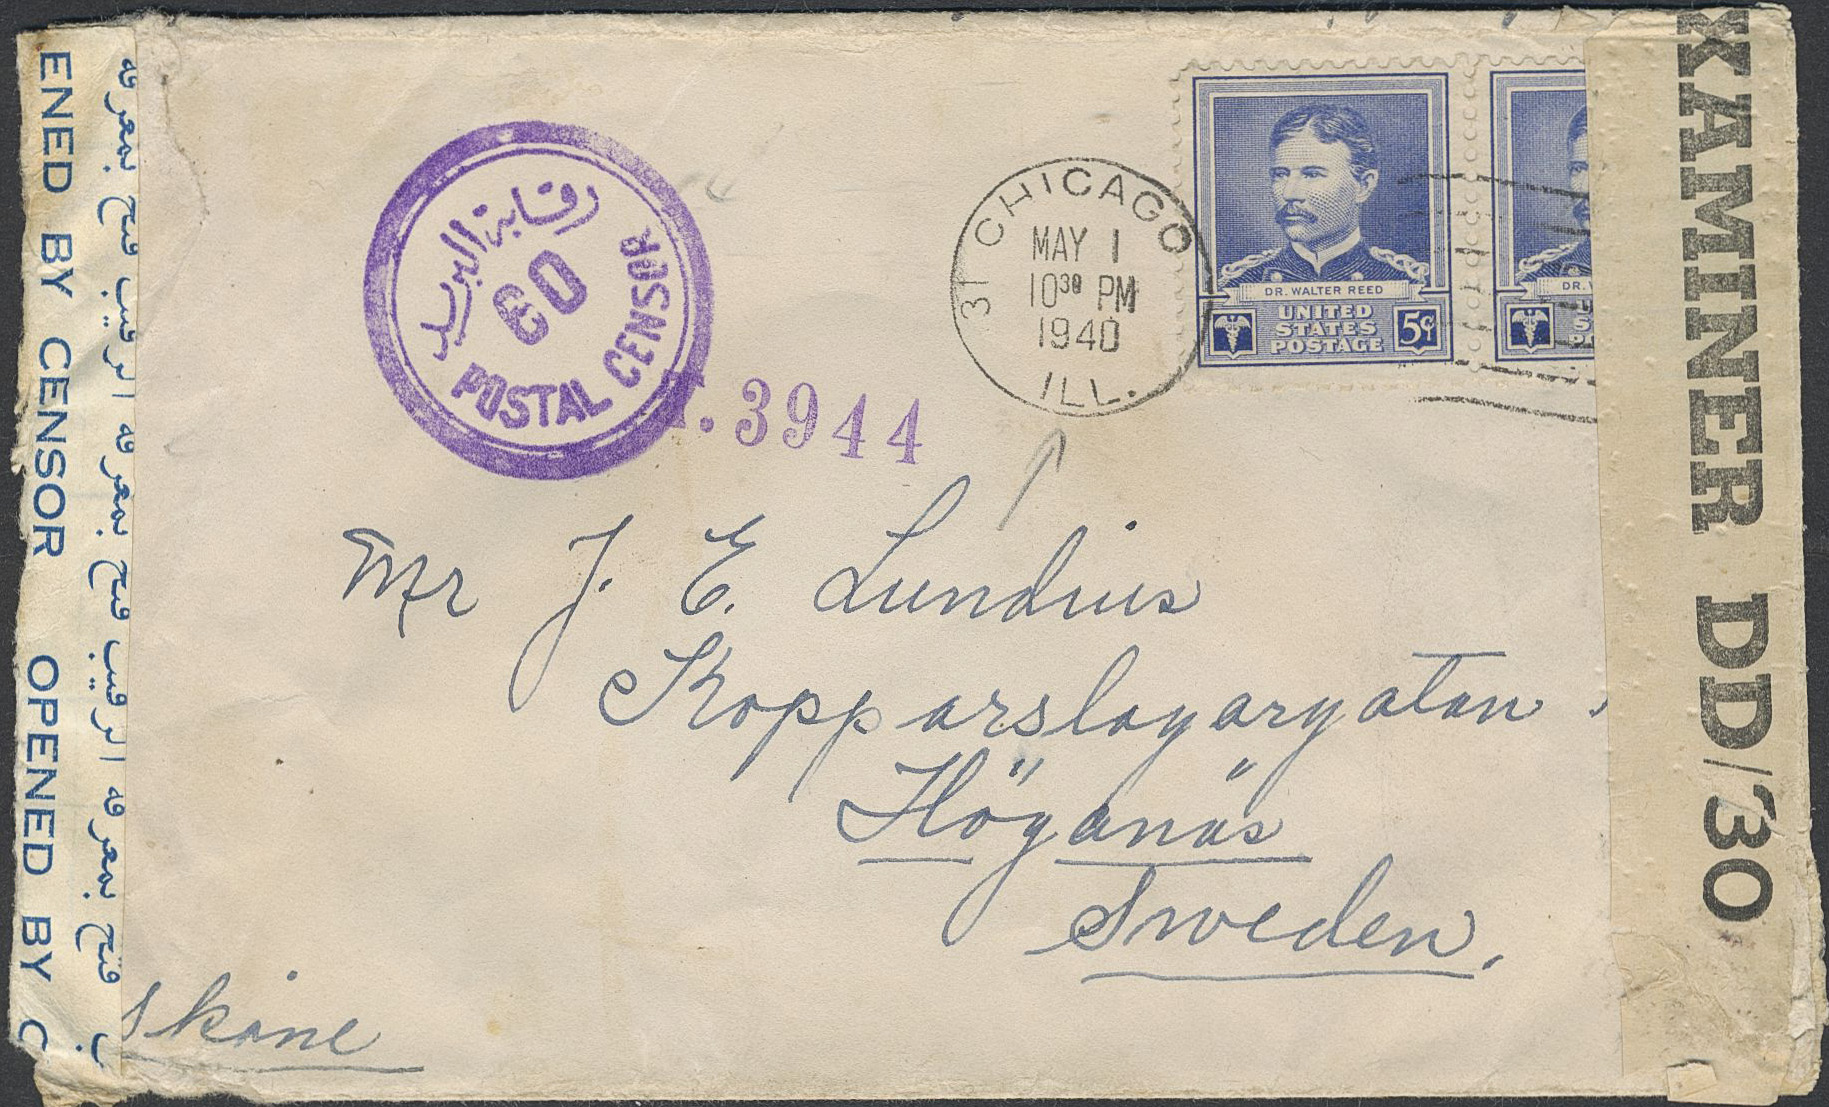 ENED BY CENSOR OPENED BY C
فتح بمعرفه
الرقيب فتح بمعرفه
الرقيب فتح بمعرفه
رقابة البريد
60
POSTAL CENSOR
.3944
CHICAGO
MAY 1
10³⁰ PM
1940
ILL.
DR. WALTER REED
UNITED
STATES
POSTAGE
5¢
DR.
XAMINER DD/30
Mr J. E. Lundius
Kopparslagargatan
Höganäs
Sweden.
Skåne